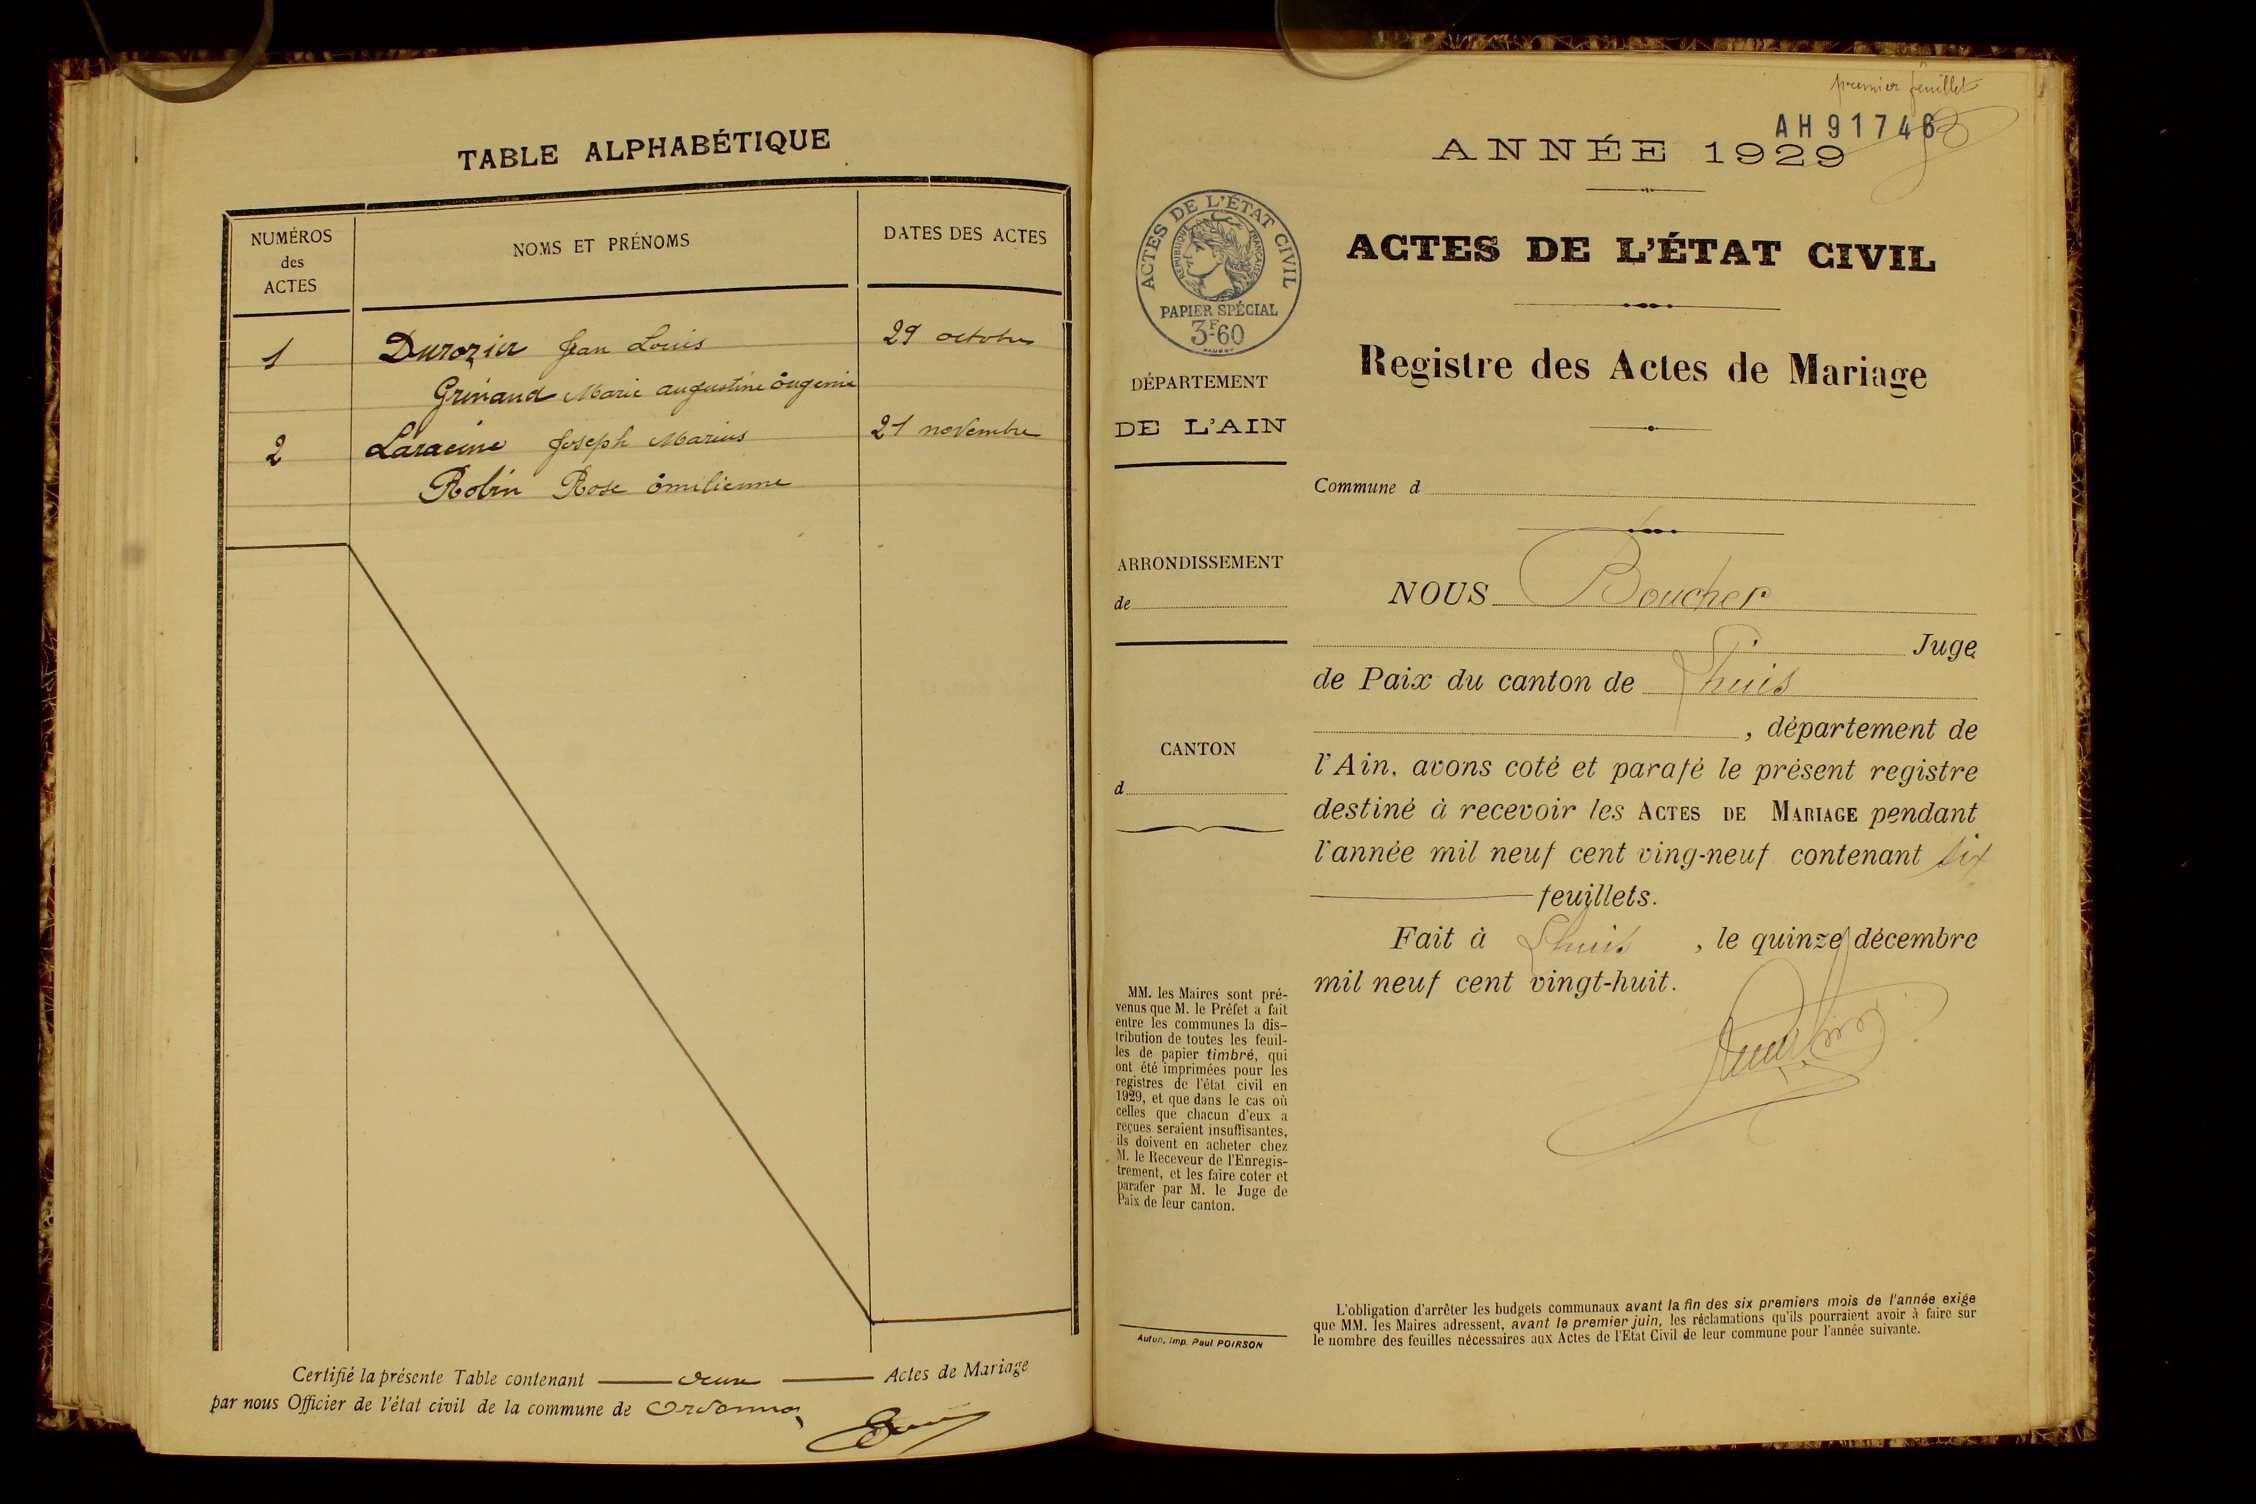 TABLE ALPHABÉTIQUE
NUMÉROS
des
ACTES
NOMS ET PRÉNOMS
DATES DES ACTES
1 Durozier Jean Louis 29 octobre
Grinand Marie augustine Eugenie
2 Laracine Joseph Marius 21 novembre
Robin Rose Emilienne
Certifié la présente Table contenant deux Actes de Mariage
par nous Officier de l'état civil de la commune de Ordonnaz
premier feuillet
AH 91746
ANNÉE 1929
ACTES DE L'ÉTAT CIVIL
RÉPUBLIQUE FRANÇAISE
PAPIER SPÉCIAL
3F60
ACTES DE L'ÉTAT CIVIL
Registre des Actes de Mariage
DÉPARTEMENT
DE L'AIN
ARRONDISSEMENT
de
CANTON
d
MM. les Maires sont pré-
venus que M. le Préfet a fait
entre les communes la dis-
tribution de toutes les feuil-
les de papier timbré, qui
ont été imprimées pour les
registres de l'état civil en
1929, et que dans le cas où
celles que chacun d'eux a
reçues seraient insuffisantes,
ils doivent en acheter chez
M. le Receveur de l'Enregis-
trement, et les faire coter et
parafer par M. le Juge de
Paix de leur canton.
Autun, Imp. Paul POIRSON
Commune d
NOUS Boucher
Juge
de Paix du canton de Lhuis
, département de
l'Ain, avons coté et parafé le présent registre
destiné à recevoir les ACTES DE MARIAGE pendant
l'année mil neuf cent ving-neuf contenant six
feuillets.
Fait à Lhuis , le quinze décembre
mil neuf cent vingt-huit.
L'obligation d'arrêter les budgets communaux avant la fin des six premiers mois de l'année exige
que MM. les Maires adressent, avant le premier juin, les réclamations qu'ils pourraient avoir à faire sur
le nombre des feuilles nécessaires aux Actes de l'Etat Civil de leur commune pour l'année suivante.